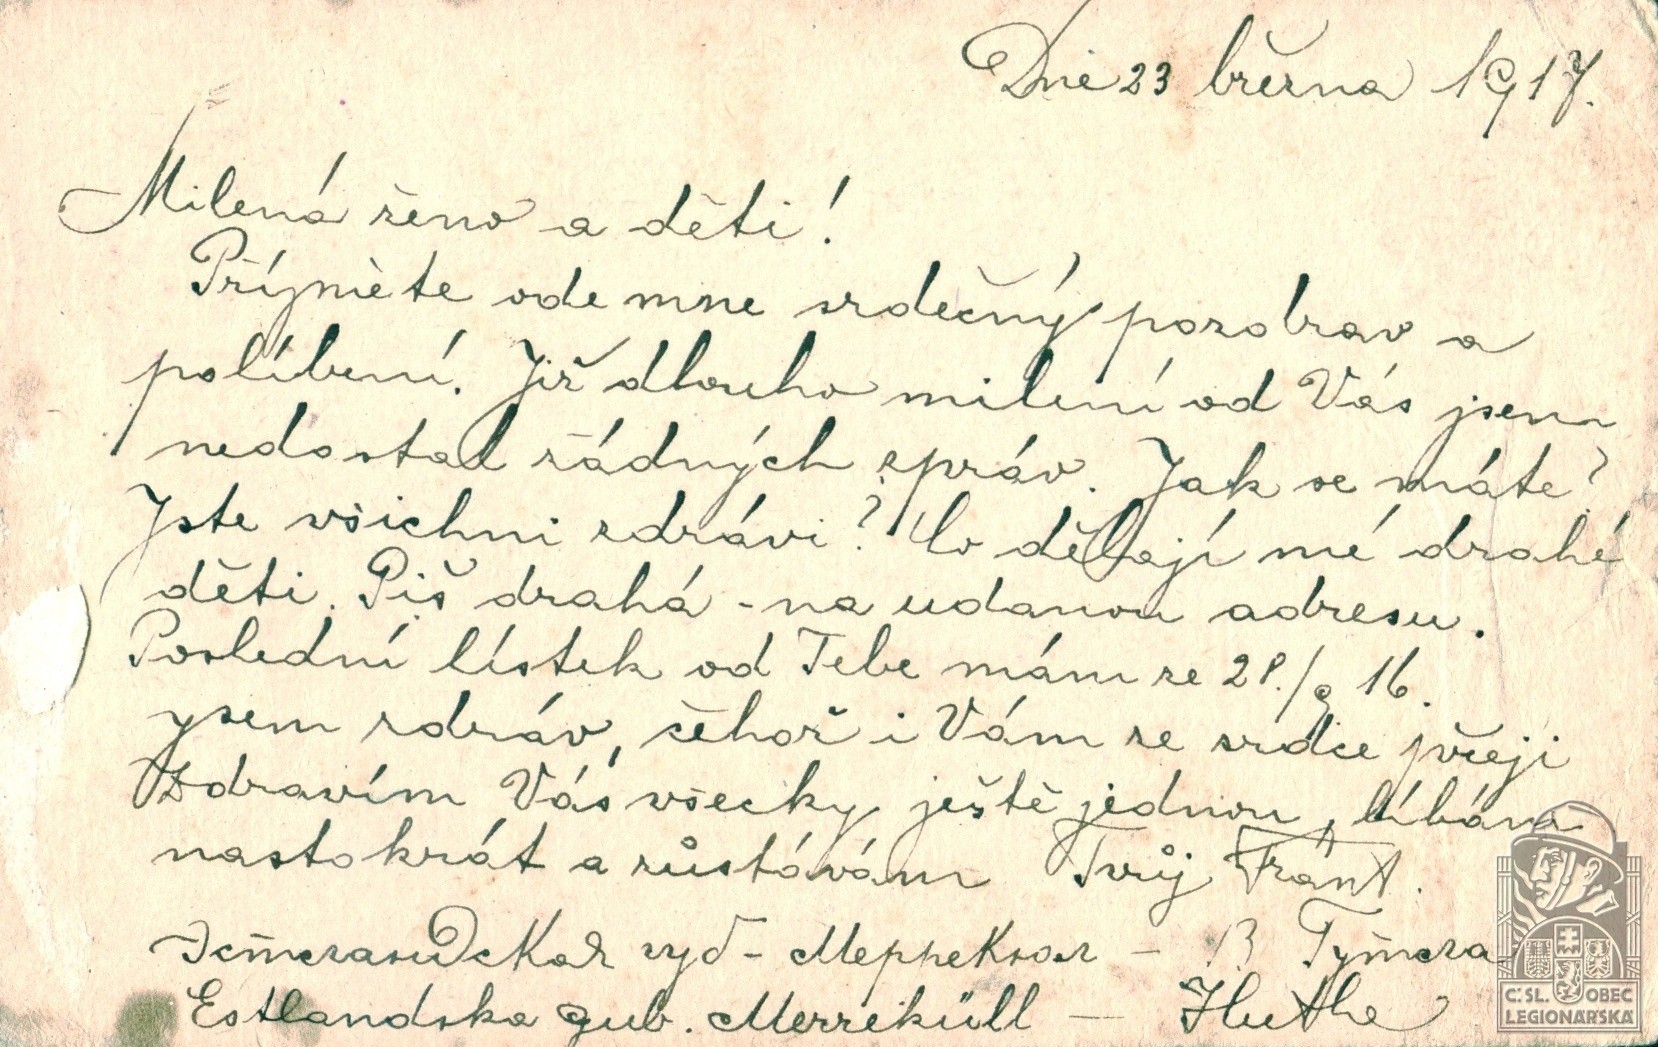 Dne 23 března 1917.
Milená ženo a děti!
Příjměte ode mne srdečný pozdrav a
políbení. Již dlouho milení od Vás jsem
nedostal řádných zpráv. Jak se máte?
Jste všichni zdrávi? Co dělají mé drahé
děti. Piš drahá - na udanou adresu.
Poslední lístek od Tebe mám ze 28./9 16.
jsem zdráv, čehož i Vám ze srdce přeji
Zdravím Vás všecky ještě jednou, líbám
nastokrát a zůstávám Tvůj Frant.
Эстландская губ - Меррекюл -
Estlandska gub. Merreküll — Huthe
Č.SL. OBEC
LEGIONÁŘSKÁ